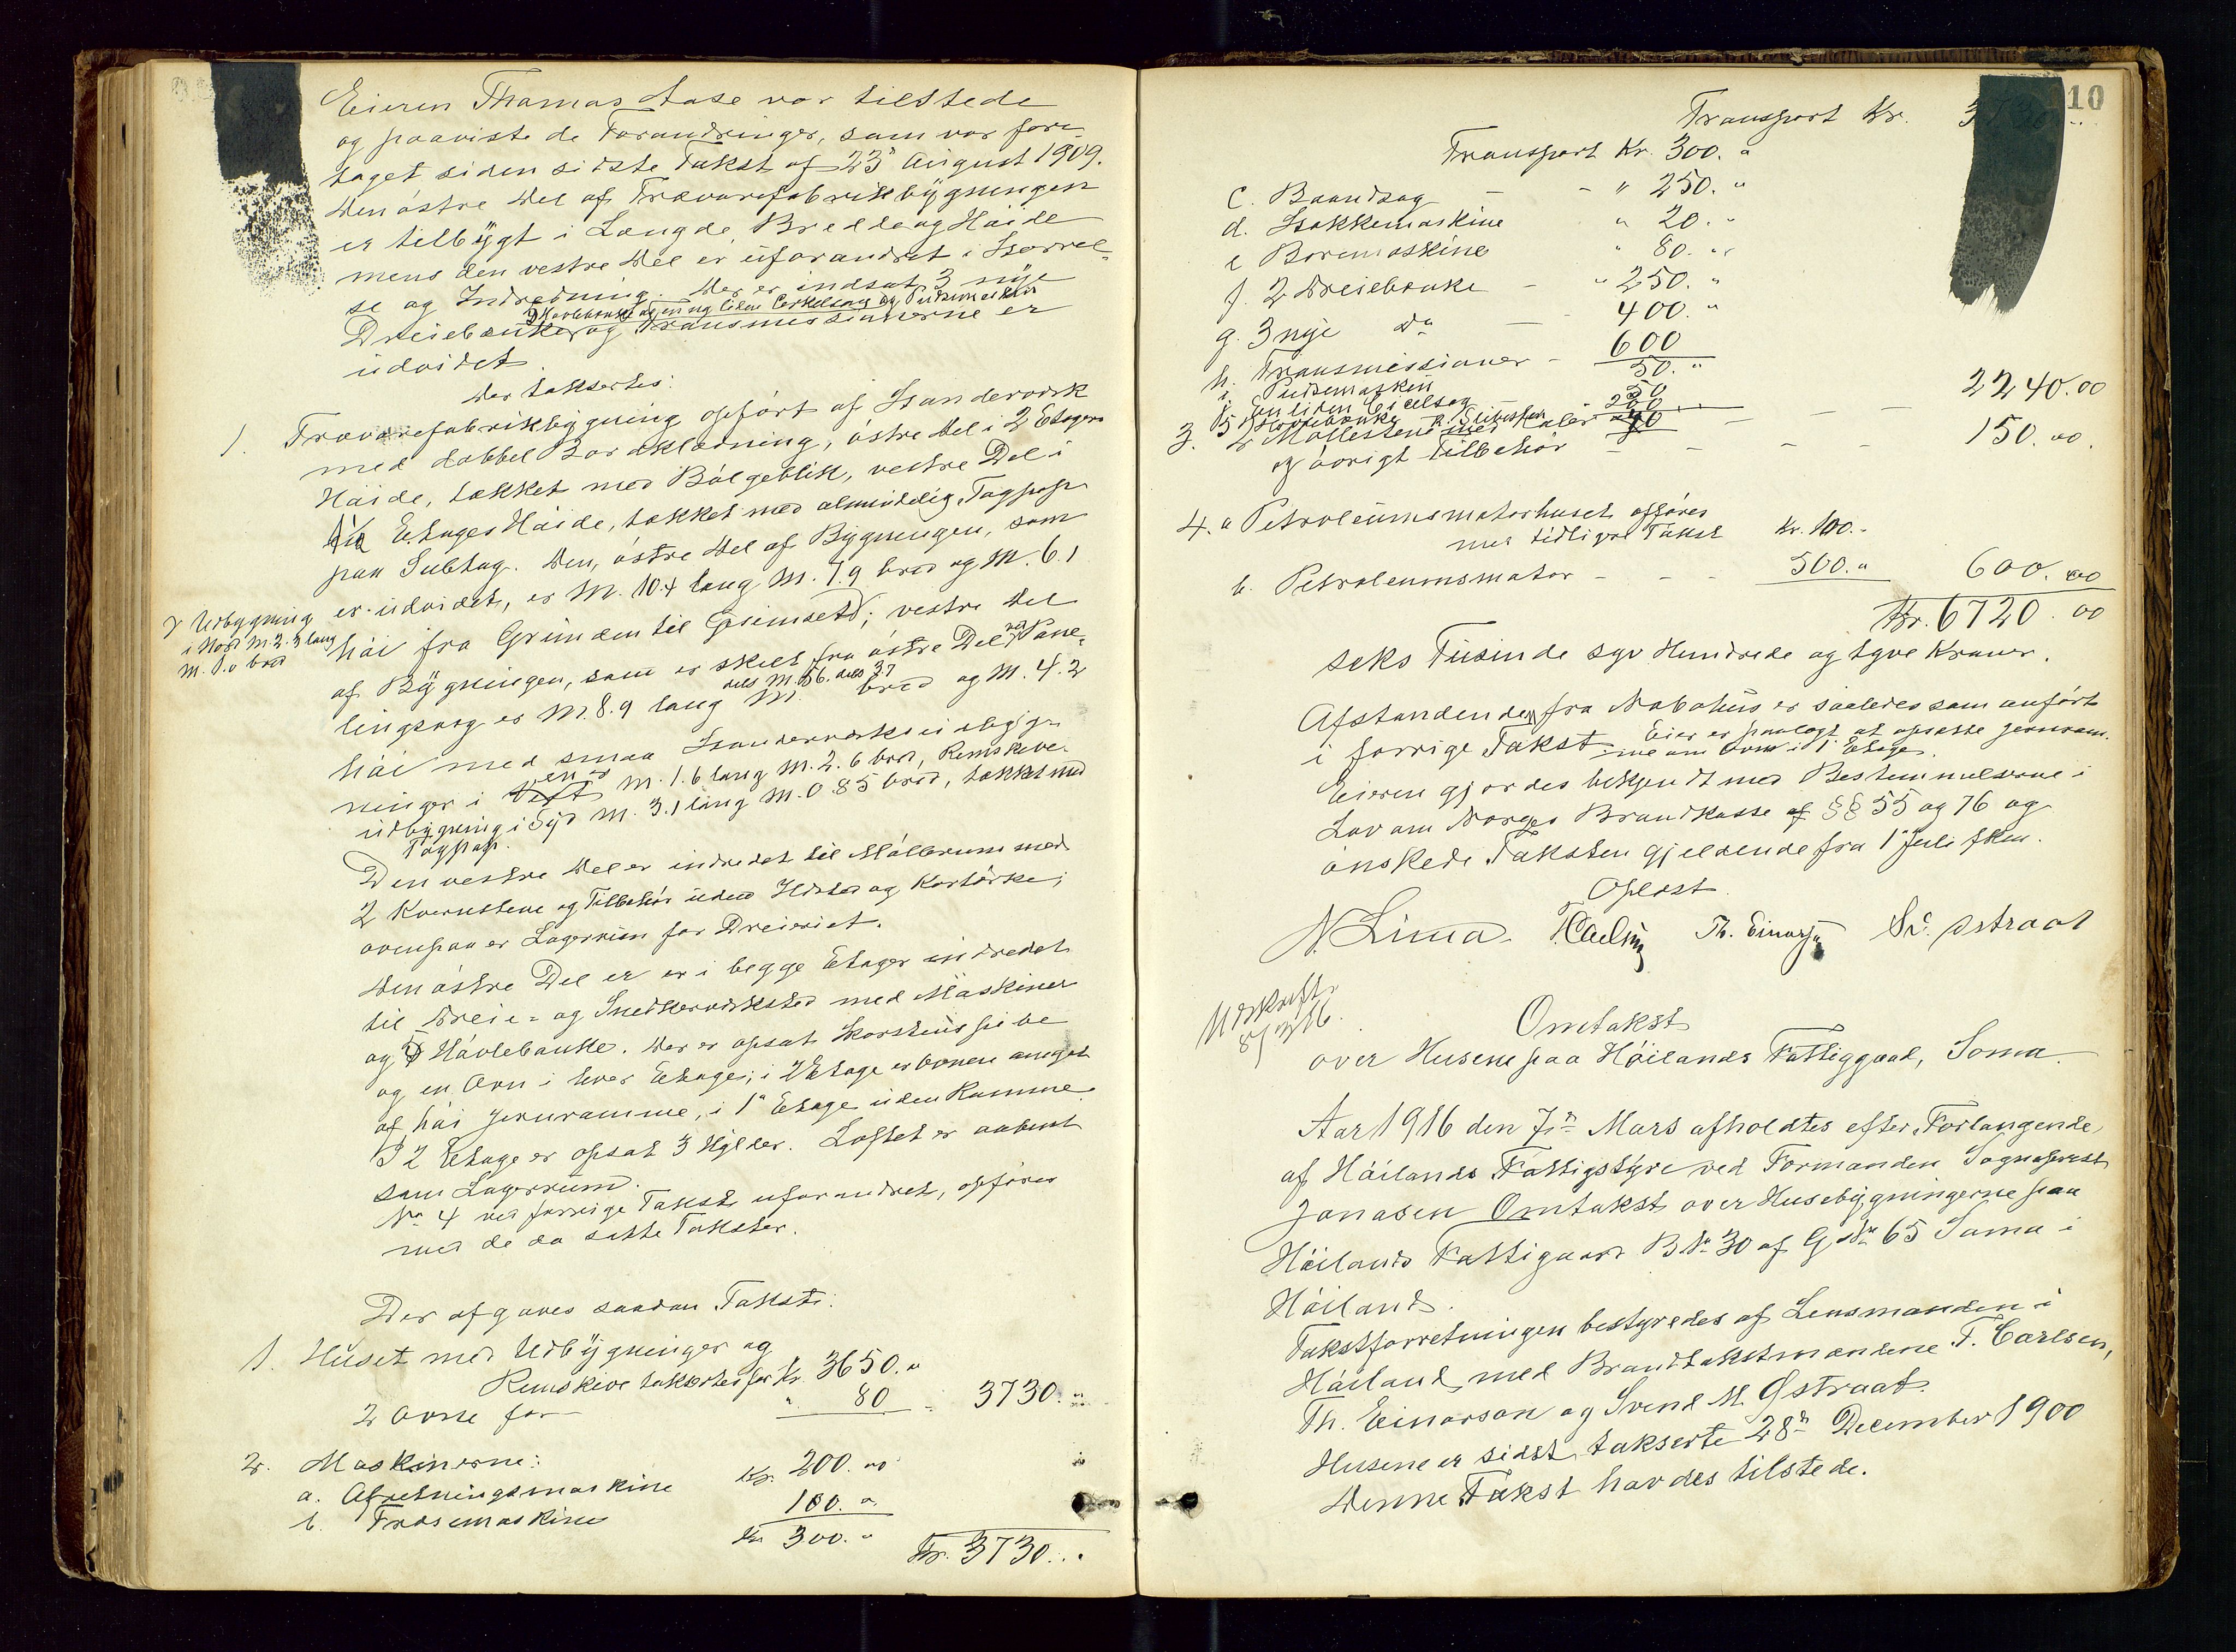 Eieren Thomas Aase var tilstede
og paaviste de Forandringer, som var fore-
taget siden sidste Takst af 23' August 1909.
Den østre Del af Trævarefabrikbygningen
er tilbygt i Længde, Bredde og Høide
mens den vestre Del er uforandret i Størrel-
se og Indredning. Der er indsat 3 nye
2 Høvlebænke og en ny liden Cirkelsag og Pudsemaskin
Dreiebænke og Transmissionerne er
udvidet.
Der taksertes:
1. Trævarefabrikbygning opført af Standerværk
med dobbel Bordklædning, østre Del i 2 Etagers
Høide, tækket med Bølgeblik, vestre Del i
Etages Høide, tækket med almindelig Tagpap
paa Subtag. Den østre Del af Bygningen, som
er udvidet, er M. 10.4 lang M. 7.9 bred og M. 6.1
Udbygning
i Nord M. 2.3 lang
M. 1.0 bred
høi fra Grunden til Gesimsen; vestre Del
af Bygningen, som er skilt fra østre Del ved Pane-
dels M. 5.6. dels 3.7
lingsvæg er M. 8.9 lang M. bred og M. 4.2
høi med smaa Standerværksudbyg-
ninger i M. 1.6 lang M. 2.6 bred, Remskive-
udbygning i Syd M. 3.1 lang M. 0.85 bred, tækket med
Tagpap.
Den vestre Del er indredet til Møllerum med
2 Kvernstene og Tilbehør uden Ildsted og Korntørke;
ovenpaa er Lagerrum for Dreieriet.
Den østre Del er er i begge Etager indredet
til Dreie- og Snedkerverksted med Maskiner
og 5 Høvlebænke. Der er opsat Skorstenspibe
og en Ovn i hver Etage; i 2' Etage er Ovnen omgit
af høi Jernramme, i 1' Etage uden Ramme.
I 2 Etage er opsat 3 Hylder. Loftet er aabent
som Lagerrum.
No 4 ved forrige Takst uforandret, opføres
med de da satte Takster.
Der afgaves saadan Takst:
1. Huset med Udbygninger og
Remskive taksertes for Kr. 3650.„
2 Ovne for „ 80 - 3730.„
2. Maskinerne:
a. Afretningsmaskine Kr. 200.00
b. Fræsemaskine 100.„
Kr. 300.„ Kr. 3730..
10
Transport Kr.
Transport Kr. 300.„
c. Baandsag - - „ 250.„
d. Stokkemaskine „ 20.„
e Boremaskine „ 80.„
f. 2 Dreiebænke - „ 250.„
g. 3 nye do - 400.„
h. Transmissioner - 600
i. Pudsemaskin 50.„
j. En liden Cirkelsag 50
5 Høvlebænke 200 - - - 2240.00
3. 2 Møllestene med
og øvrigt Tilbehør - - - - 150.00.
4. a Petroleumsmotorhuset opføres
med tidligere Takst Kr. 100.-
b. Petroleumsmotor - - - 500.„ 600.00
Kr. 6720.00
seks Tusinde syv Hundrede og tyve Kroner.
Afstanden fra Nabohus er saaledes som anført
i forrige Takst. Eier er paalagt at opsætte Jernram-
me om Ovn i 1' Etage.
Eieren gjordes bekjendt med Bestemmelserne i
Lov om Norges Brandkasse af §§ 55 og 76 og
ønskede Taksten gjeldende fra 1' Juli fkm.
Oplæst
N. Lima. T. Carlsen Th. Einarsen Sv. Østraat
Udskrift
8/3 16.
Omtakst
over Husene paa Høilands Fattiggaard, Soma.
Aar 1916 den 7de Mars afholdtes efter Forlangende
af Høilands Fattigstyre ved Formanden Sogneprest
Jonasen Omtakst over Husebygningerne paa
Høilands Fattiggaard B.No 30 af G.No 65 Soma i
Høiland.
Takstforretningen bestyredes af Lensmanden i
Høiland, med Brandtakstmændene T. Carlsen,
Th. Einarson og Svend M. Østraat.
Husene er sidst takserte 28de December 1900
Denne Takst havdes tilstede.